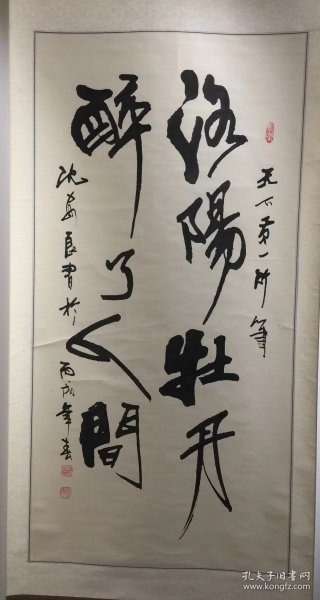 天下第一
洛陽牡丹
醉了人間
沈 良書於丙戌年春
孔夫子旧书网
www.kongfz.com